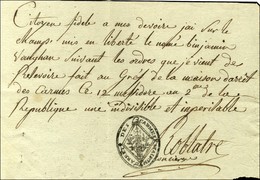 Citoyen fidele a mes devoire jai sur le
Champs mis en liberté le nomé Benjamin
Vaughan suivant les ordres que je vient de
Recevoire fait au Gref de la maison darrêt
des Carmes Ce 12 messidore an 2eme de la
Republique une indivisible et imperissable
Roblatre
concierge